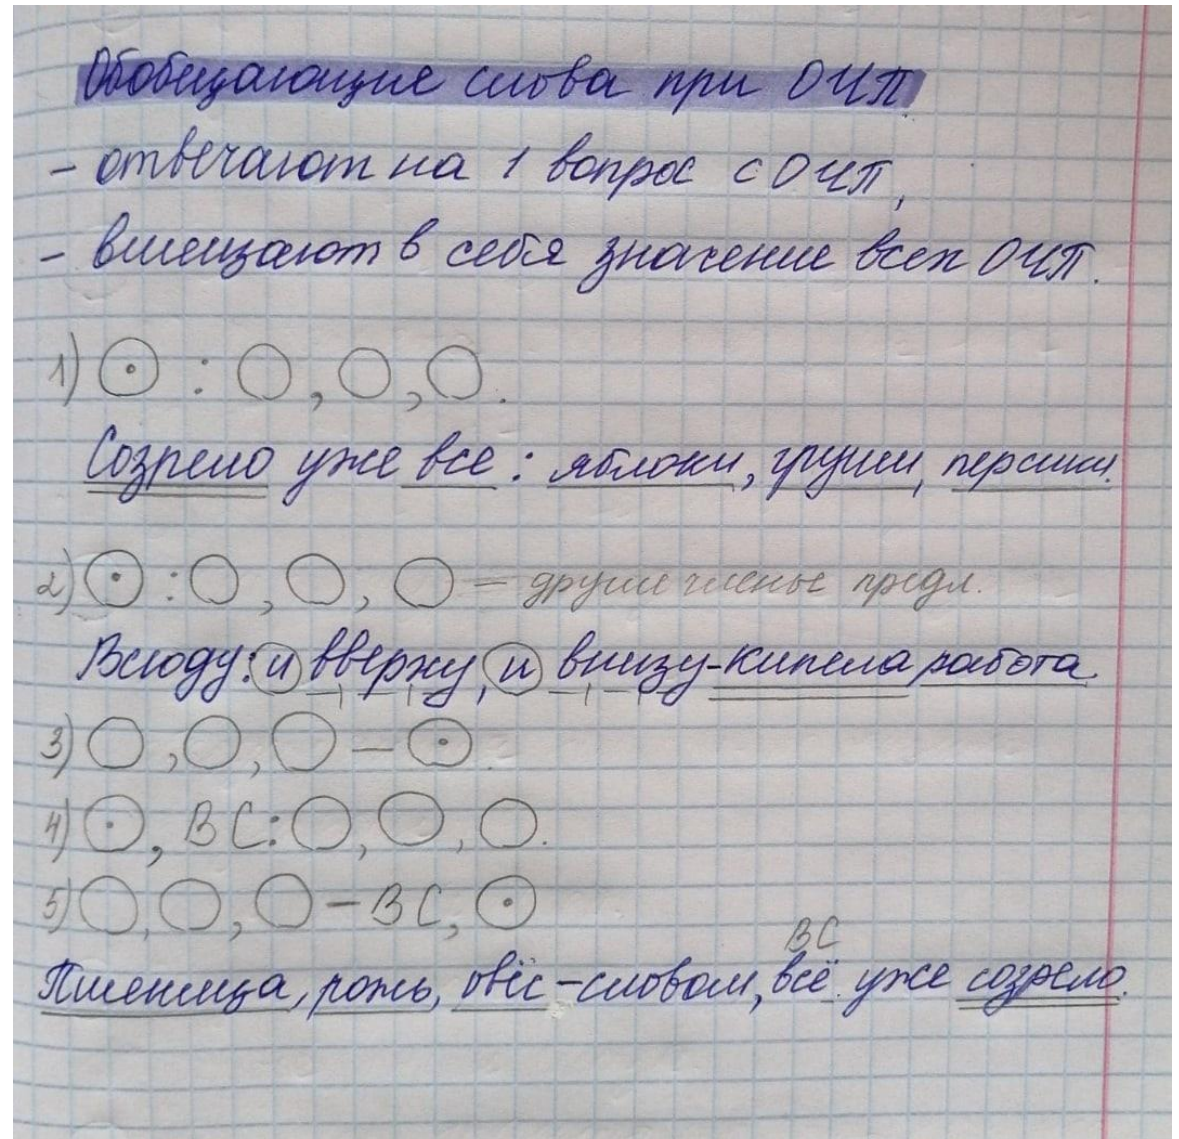 Обобщающие слова при ОЧП
- отвечают на 1 вопрос с ОЧП,
- вмещают в себя значение всех ОЧП.
1) ⊙ : ○, ○, ○.
Созрело уже все: яблоки, груши, персики.
2) ⊙ : ○, ○, ○ — другие члены предл.
Всюду: и вверху, и внизу - кипела работа.
3) ○, ○, ○ — ⊙.
4) ⊙, ВС: ○, ○, ○.
5) ○, ○, ○ — ВС, ⊙
ВС
Пшеница, рожь, овёс - словом, всё уже созрело.